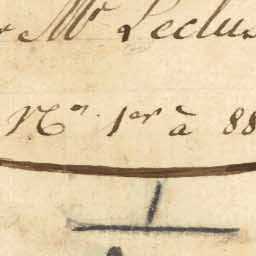 Mr Leclu
No. 1er à 88
1